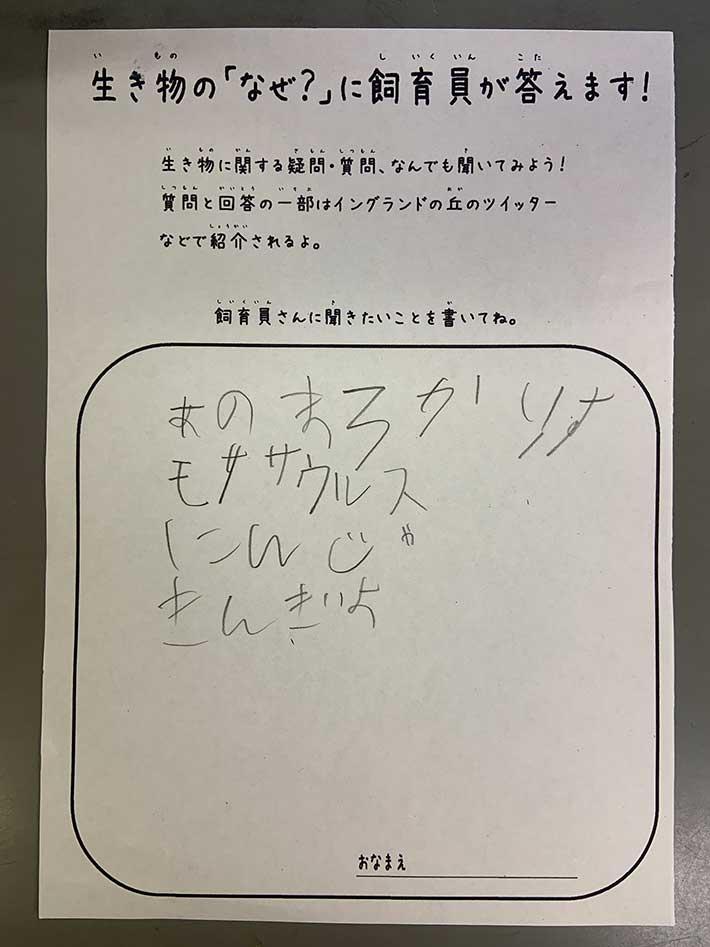 生き物の「なぜ？」に飼育員が答えます！
生き物に関する疑問・質問、なんでも聞いてみよう！
質問と回答の一部はイングランドの丘のツイッター
などで紹介されるよ。
飼育員さんに聞きたいことを書いてね。
あのまろかりす
モササウルス
にんじゃ
きんぎよ
おなまえ